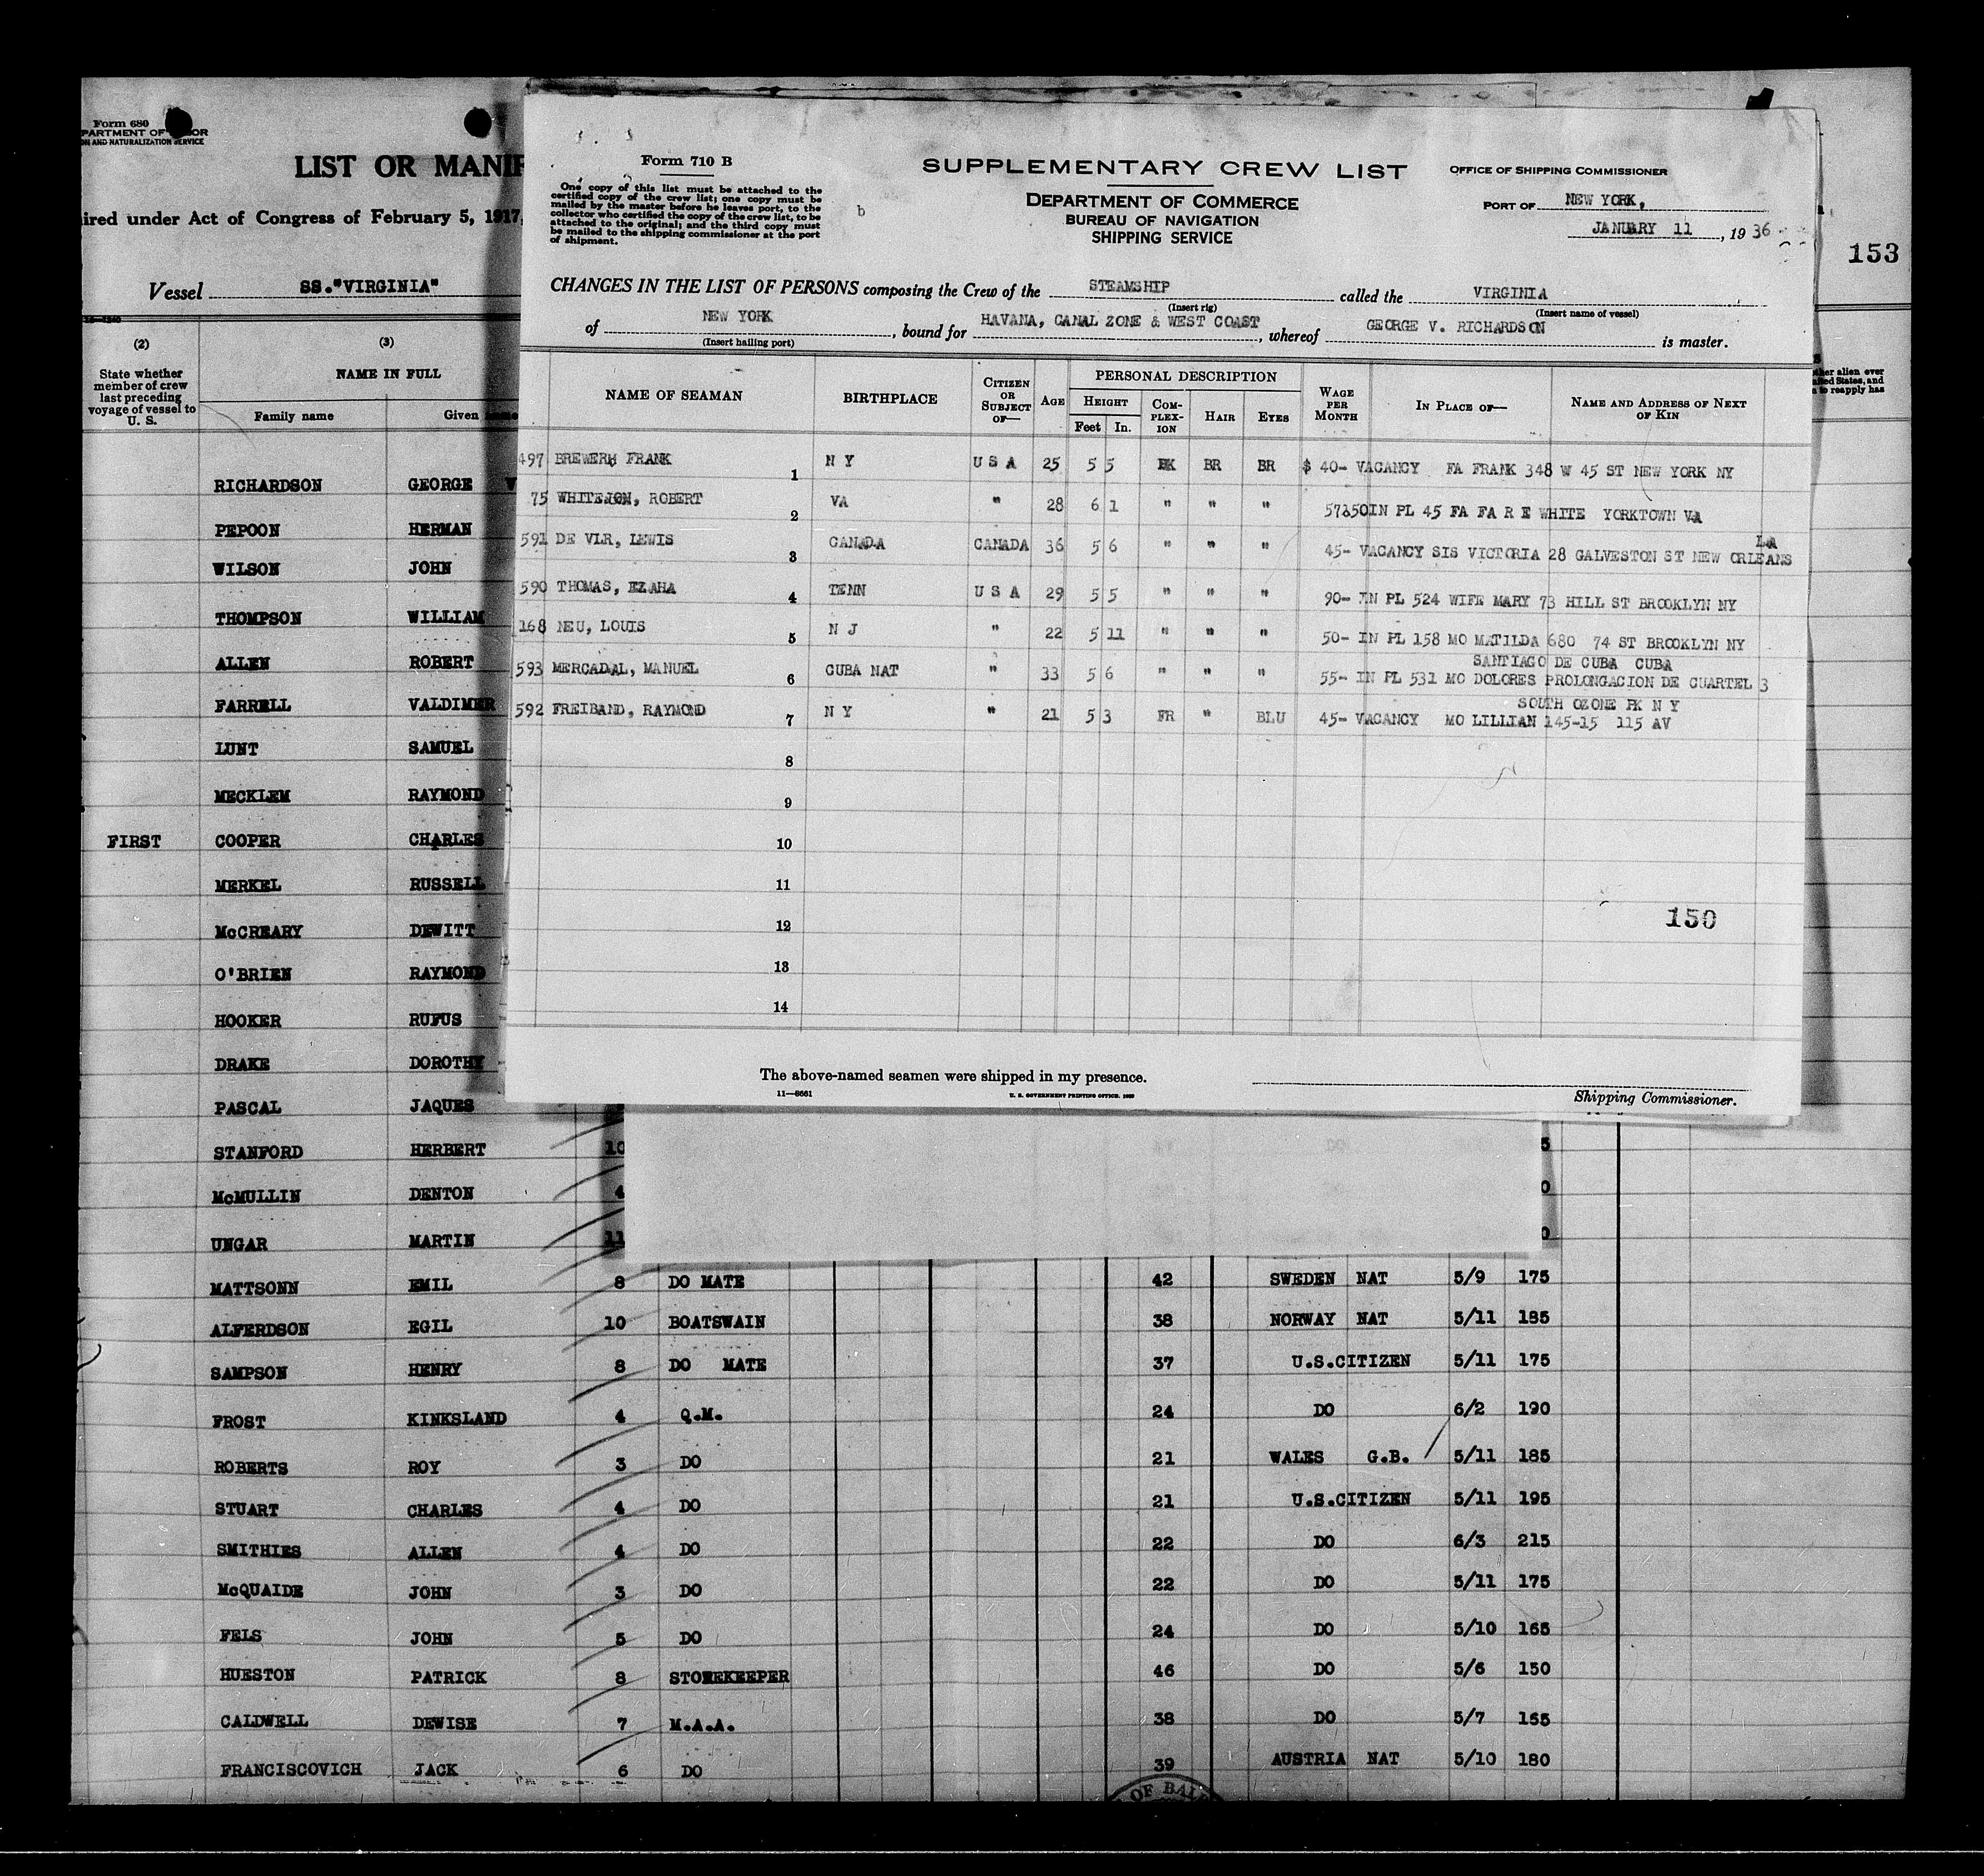 Form 680
LIST OR MANIF
ired under Act of Congress of February 5, 1917,
Vessel SS."VIRGINIA"
(2) (3)
State whether
member of crew
last preceding
voyage of vessel to
U. S.
NAME IN FULL
Family name Given name
RICHARDSON GEORGE V
PEPOON HERMAN
WILSON JOHN
THOMPSON WILLIAM
ALLEN ROBERT
FARRELL VALDIMER
LUNT SAMUEL
MECKLEM RAYMOND
FIRST COOPER CHARLES
MERKEL RUSSELL
McCREARY DEWITT
O'BRIEN RAYMOND
HOOKER RUFUS
DRAKE DOROTHY
PASCAL JAQUES
STANFORD HERBERT 10
McMULLIN DENTON 4
UNGAR MARTIN 11
MATTSONN EMIL 8 DO MATE 42 SWEDEN NAT 5/9 175
ALFERDSON EGIL 10 BOATSWAIN 38 NORWAY NAT 5/11 185
SAMPSON HENRY 8 DO MATE 37 U.S.CITIZEN 5/11 175
FROST KINKSLAND 4 Q.M. 24 DO 6/2 190
ROBERTS ROY 3 DO 21 WALES G.B. 5/11 185
STUART CHARLES 4 DO 21 U.S.CITIZEN 5/11 195
SMITHIES ALLEN 4 DO 22 DO 6/3 215
McQUAIDE JOHN 3 DO 22 DO 5/11 175
FELS JOHN 5 DO 24 DO 5/10 165
HUESTON PATRICK 8 STOREKEEPER 46 DO 5/6 150
CALDWELL DEWISE 7 M.A.A. 38 DO 5/7 155
FRANCISCOVICH JACK 6 DO 39 AUSTRIA NAT 5/10 180
OF BAL
153
Form 710 B
One copy of this list must be attached to the
certified copy of the crew list; one copy must be
mailed by the master before he leaves port, to the
collector who certified the copy of the crew list, to be
attached to the original; and the third copy must
be mailed to the shipping commissioner at the port
of shipment.
b
SUPPLEMENTARY CREW LIST
DEPARTMENT OF COMMERCE
BUREAU OF NAVIGATION
SHIPPING SERVICE
OFFICE OF SHIPPING COMMISSIONER
PORT OF NEW YORK,
JANUARY 11, 1936
CHANGES IN THE LIST OF PERSONS composing the Crew of the STEAMSHIP called the VIRGINIA
(Insert rig) (Insert name of vessel)
of NEW YORK, bound for HAVANA, CANAL ZONE & WEST COAST, whereof GEORGE V. RICHARDSON is master.
(Insert hailing port)
NAME OF SEAMAN BIRTHPLACE CITIZEN OR SUBJECT OF— AGE PERSONAL DESCRIPTION WAGE PER MONTH IN PLACE OF— NAME AND ADDRESS OF NEXT OF KIN
HEIGHT COMPLEX-ION HAIR EYES
Feet In.
497 BREWERH FRANK 1 N Y U S A 25 5 5 BK BR BR $ 40- VACANCY FA FRANK 348 W 45 ST NEW YORK NY
75 ROBERT 2 VA " 28 6 1 " " " IN PL 45 FA FA R E WHITE YORKTOWN VA
591 DE VLR, LEWIS 3 CANADA CANADA 36 5 6 " " " 45- VACANCY SIS VICTORIA 28 GALVESTON ST NEW ORLEANS LA
590 THOMAS, EZAHA 4 TENN U S A 29 5 5 " " " 90- IN PL 524 WIFE MARY 73 HILL ST BROOKLYN NY
168 NEU, LOUIS 5 N J " 22 5 11 " " " 50- IN PL 158 MO MATILDA 680 74 ST BROOKLYN NY
SANTIAGO DE CUBA CUBA
593 MERCADAL, MANUEL 6 CUBA NAT " 33 5 6 " " " 55- IN PL 531 MO DOLORES PROLONGACION DE CUARTEL 3
SOUTH OZONE PK N Y
592 FREIBAND, RAYMOND 7 N Y " 21 5 3 FR " BLU 45- VACANCY MO LILLIAN 145-15 115 AV
8
9
10
11
12
13
14
150
The above-named seamen were shipped in my presence.
11—8661
U. S. GOVERNMENT PRINTING OFFICE.
Shipping Commissioner.